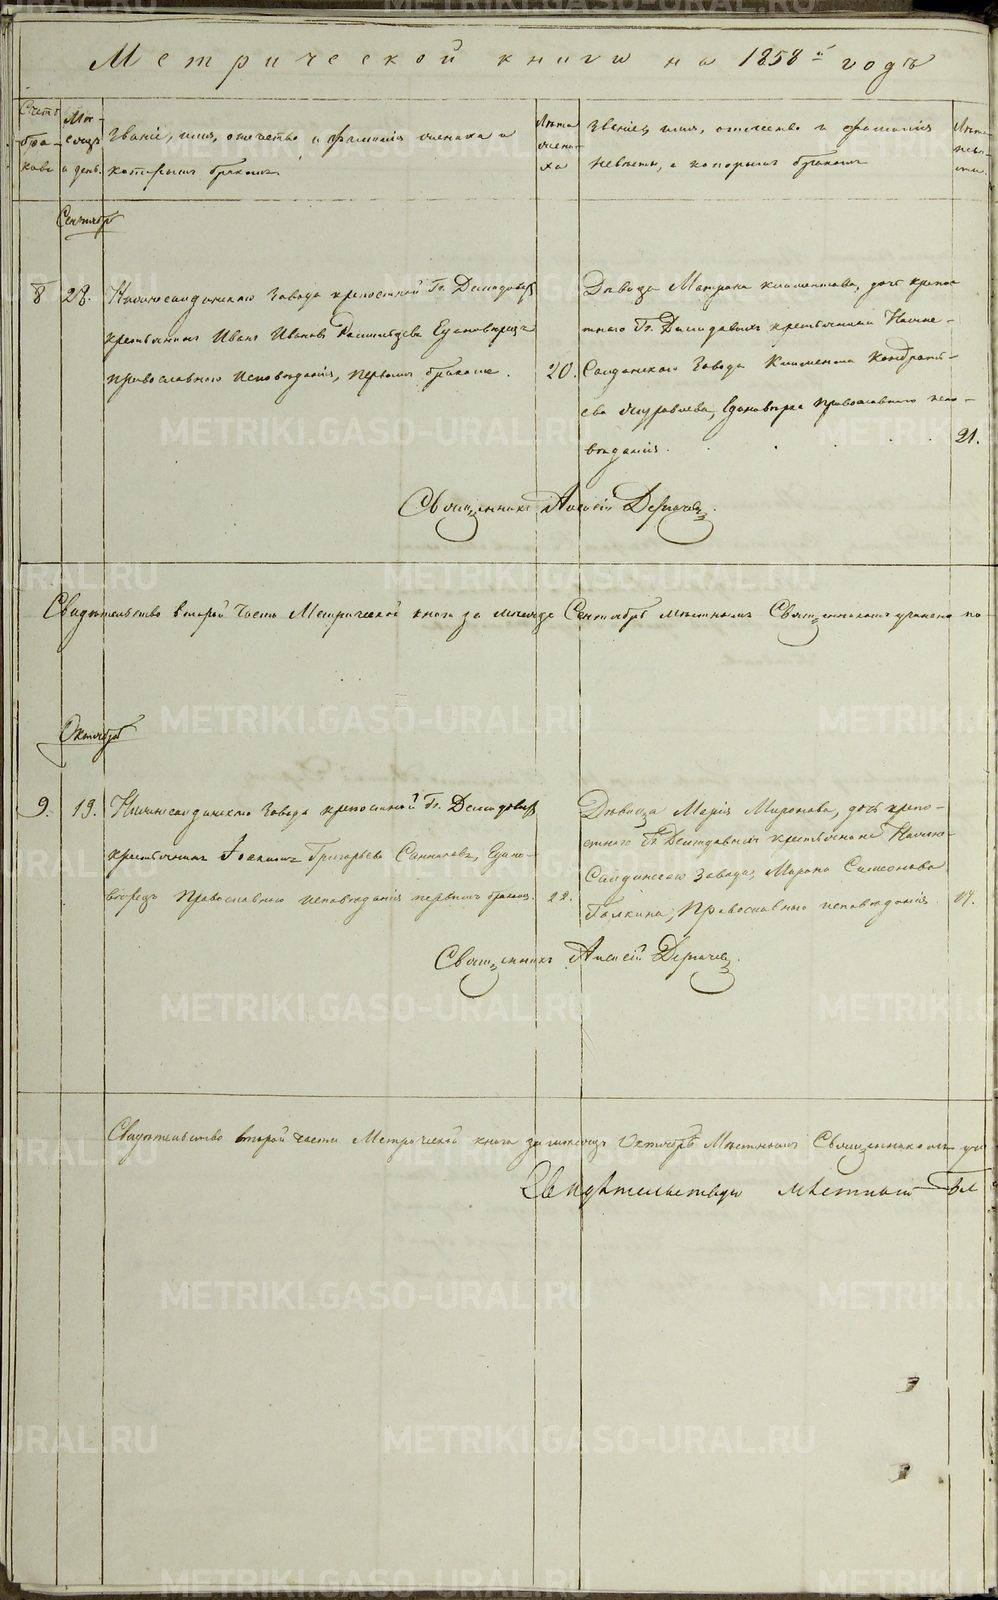 Метрической книги на 1858 й годъ
Счетъ браковъ
Мѣсяцъ и день.
Званіе, имя, отчество и фамилія жениха и
которымъ бракомъ.
Лѣта жениха
Званіе, имя, отчество и фамилія
невѣсты, и которымъ бракомъ
Лѣта невѣсты.
Сентябрь
8 28. Нижнесалдинскаго завода крепостной Гг. Демидовыхъ
крестьянинъ Иванъ Ивановъ Единовѣрецъ
православнаго исповѣданія, первымъ бракомъ. 20.
Дѣвица Матрона Климентова, дочь крепо-
стнаго Гг. Демидовыхъ крестьянина Нижне-
Салдинскаго завода Климента Кондрать-
ева Журавлева, Единовѣрка православнаго испо-
вѣданія. 21.
Священникъ Алексій Дерячевъ.
Свидѣтельство второй части Метрической книги за мѣсяцъ Сентябрь мѣстнымъ Священникомъ
Октябрь
9. 19. Нижнесалдинскаго завода крепостной Гг. Демидовыхъ
крестьянинъ Григорьевъ Едино-
вѣрецъ Православнаго исповѣданія первымъ бракомъ. 22.
Дѣвица Марія Миронова, дочь крепо-
стнаго Гг. Демидовыхъ крестьянина Нижне-
Салдинскаго завода, Мирона Симеонова
Галкина, Православнаго исповѣданія.
Священникъ Алексій Дерячевъ.
Свидѣтельство второй части Метрической книги за мѣсяцъ Октябрь Мѣстнымъ Священникомъ
Свидѣтельствовалъ мѣстный Бл
METRIKI.GASO-URAL.RU